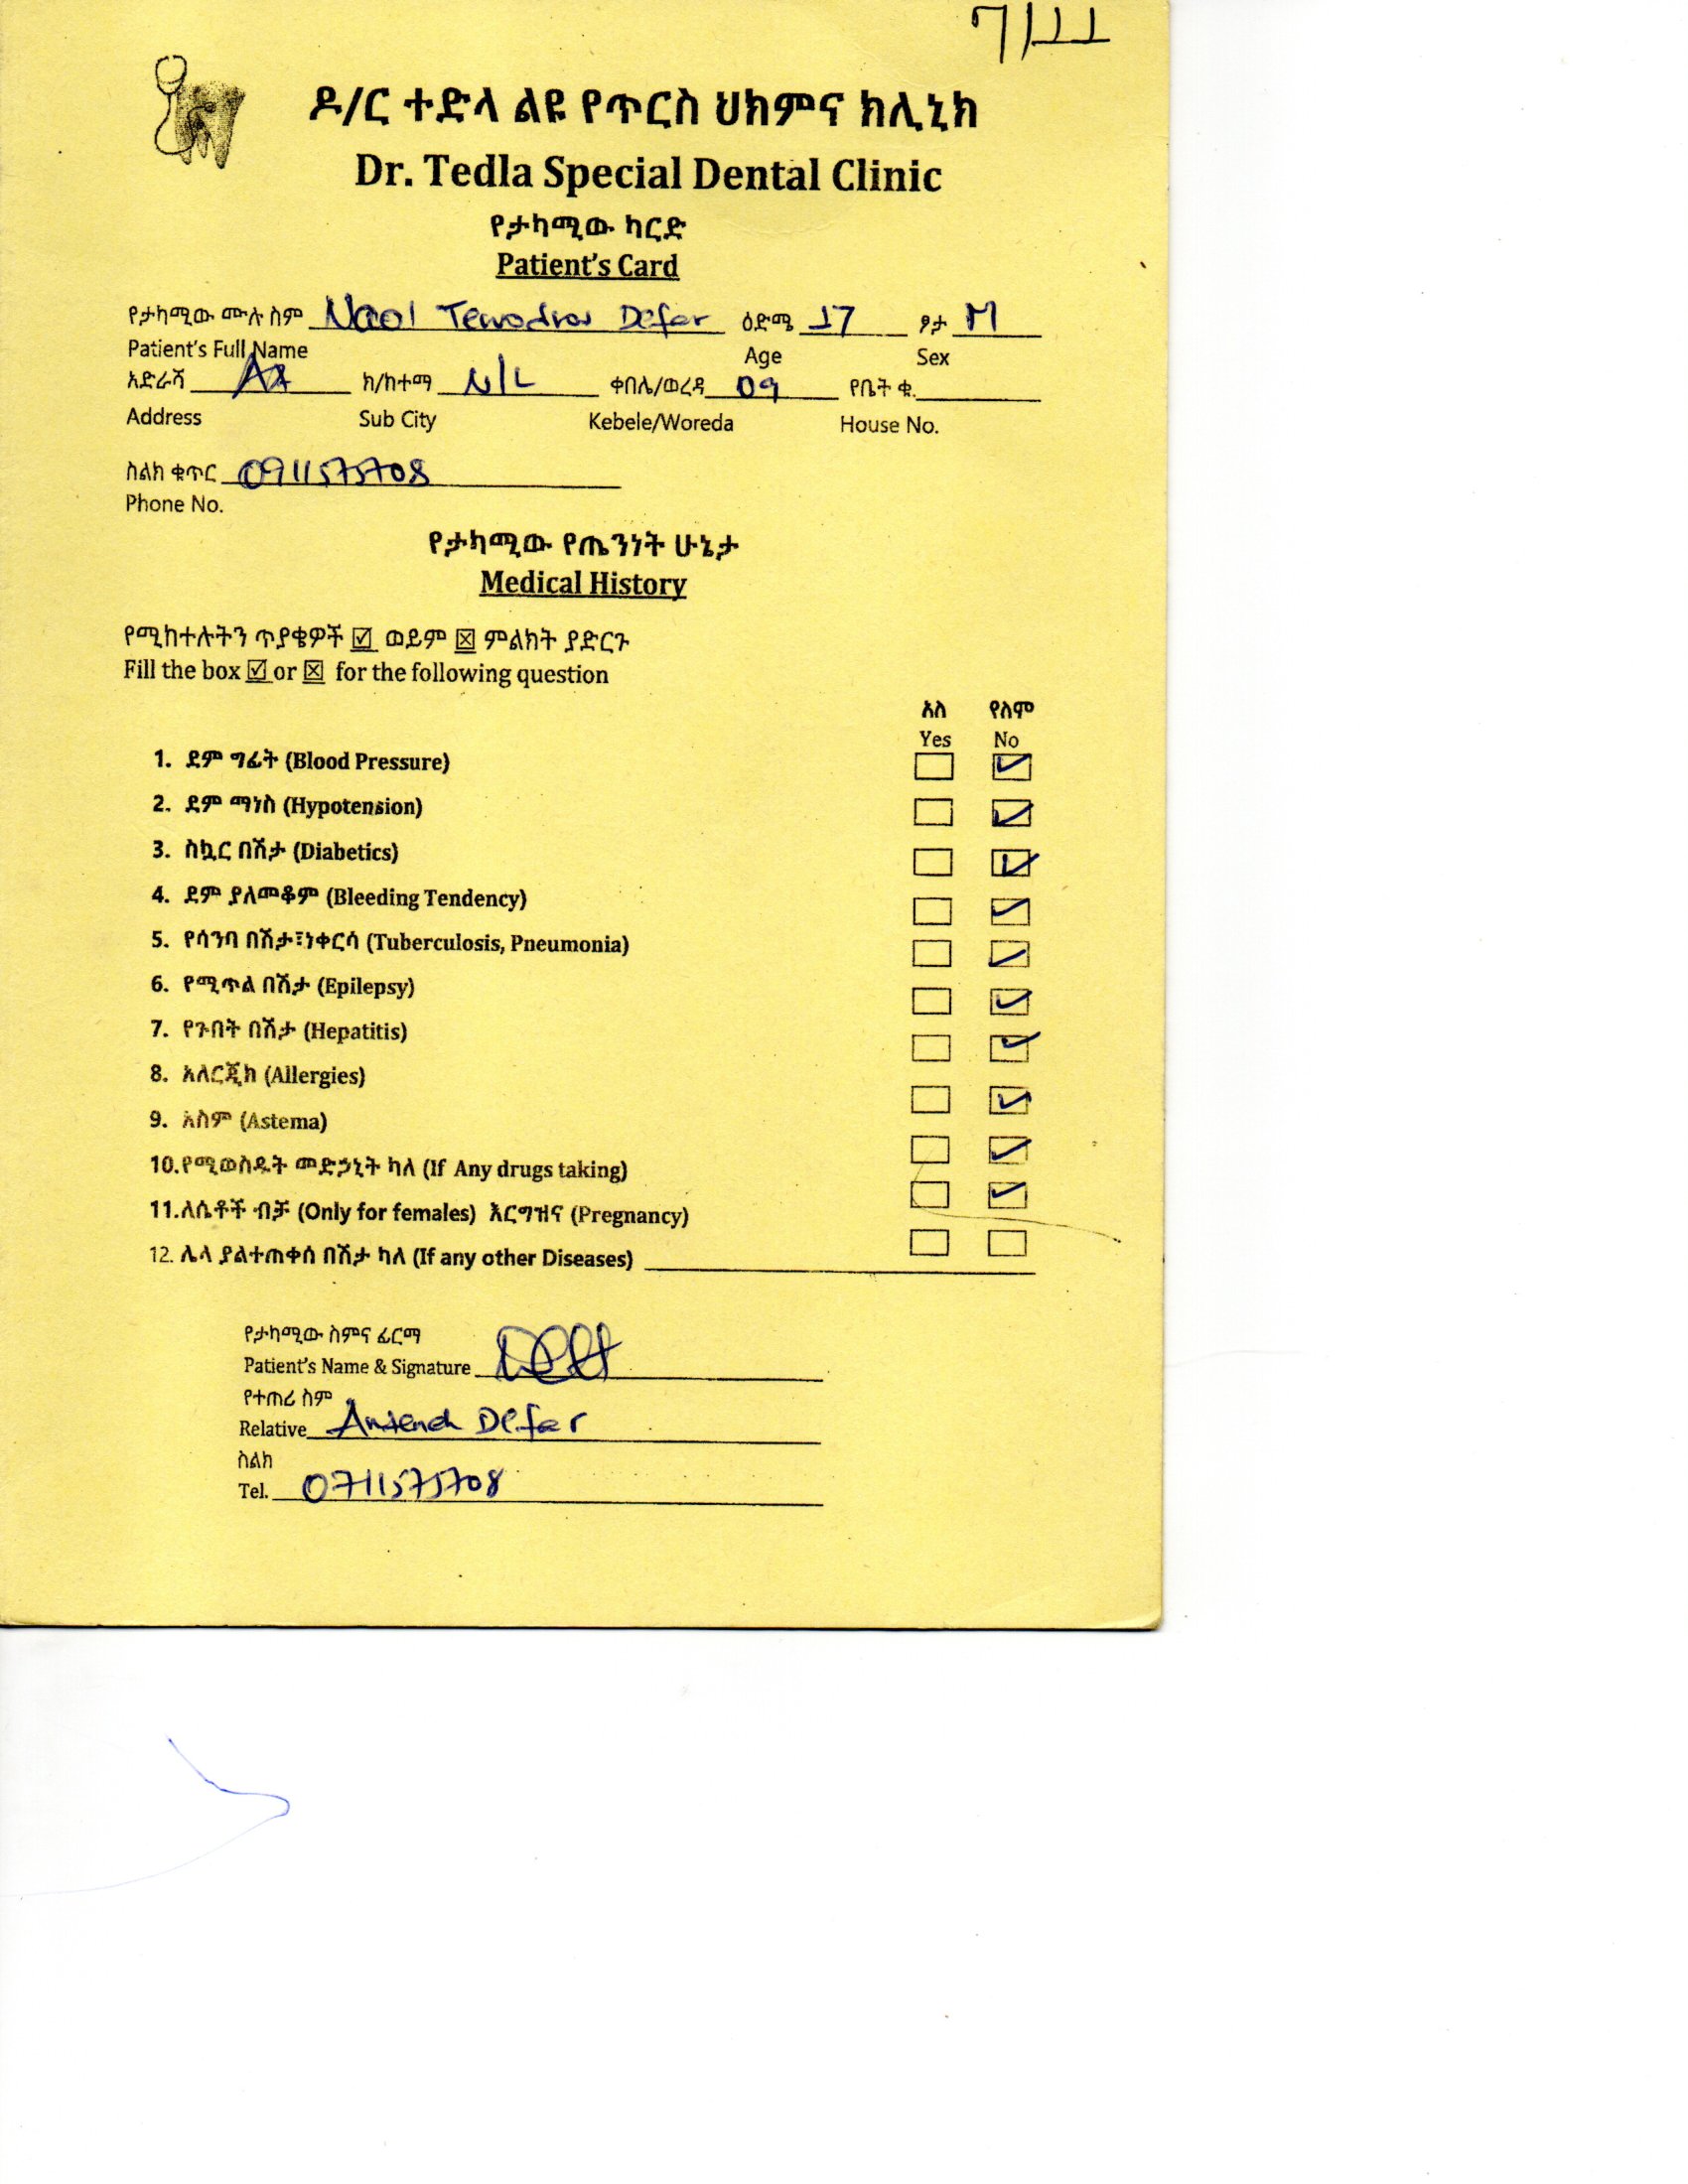 7/11
ዶ/ር ተድላ ልዩ የጥርስ ህክምና ክሊኒክ
Dr. Tedla Special Dental Clinic
የታካሚው ካርድ
Patient's Card
የታካሚው ሙሉ ስም Naol Tewodros Defar ዕድሜ 17 ፆታ M
Patient's Full Name Age Sex
አድራሻ AA ክ/ከተማ N/L ቀበሌ/ወረዳ 09 የቤት ቁ.
Address Sub City Kebele/Woreda House No.
ስልክ ቁጥር 0911575708
Phone No.
የታካሚው የጤንነት ሁኔታ
Medical History
የሚከተሉትን ጥያቄዎች ☑ ወይም ☒ ምልክት ያድርጉ
Fill the box ☑ or ☒ for the following question
አለ የለም
Yes No
1. ደም ግፊት (Blood Pressure) ☐ ☑
2. ደም ማነስ (Hypotension) ☐ ☑
3. ስኳር በሽታ (Diabetics) ☐ ☑
4. ደም ያለመቆም (Bleeding Tendency) ☐ ☑
5. የሳንባ በሽታ፣ነቀርሳ (Tuberculosis, Pneumonia) ☐ ☑
6. የሚጥል በሽታ (Epilepsy) ☐ ☑
7. የጉበት በሽታ (Hepatitis) ☐ ☑
8. አለርጂክ (Allergies) ☐ ☑
9. አስም (Astema) ☐ ☑
10.የሚወስዱት መድኃኒት ካለ (If Any drugs taking) ☐ ☑
11.ለሴቶች ብቻ (Only for females) እርግዝና (Pregnancy) ☐ ☐
12. ሌላ ያልተጠቀሰ በሽታ ካለ (If any other Diseases)
የታካሚው ስምና ፊርማ
Patient's Name & Signature
የተጠሪ ስም
Relative Defar
ስልክ
Tel. 0711575708